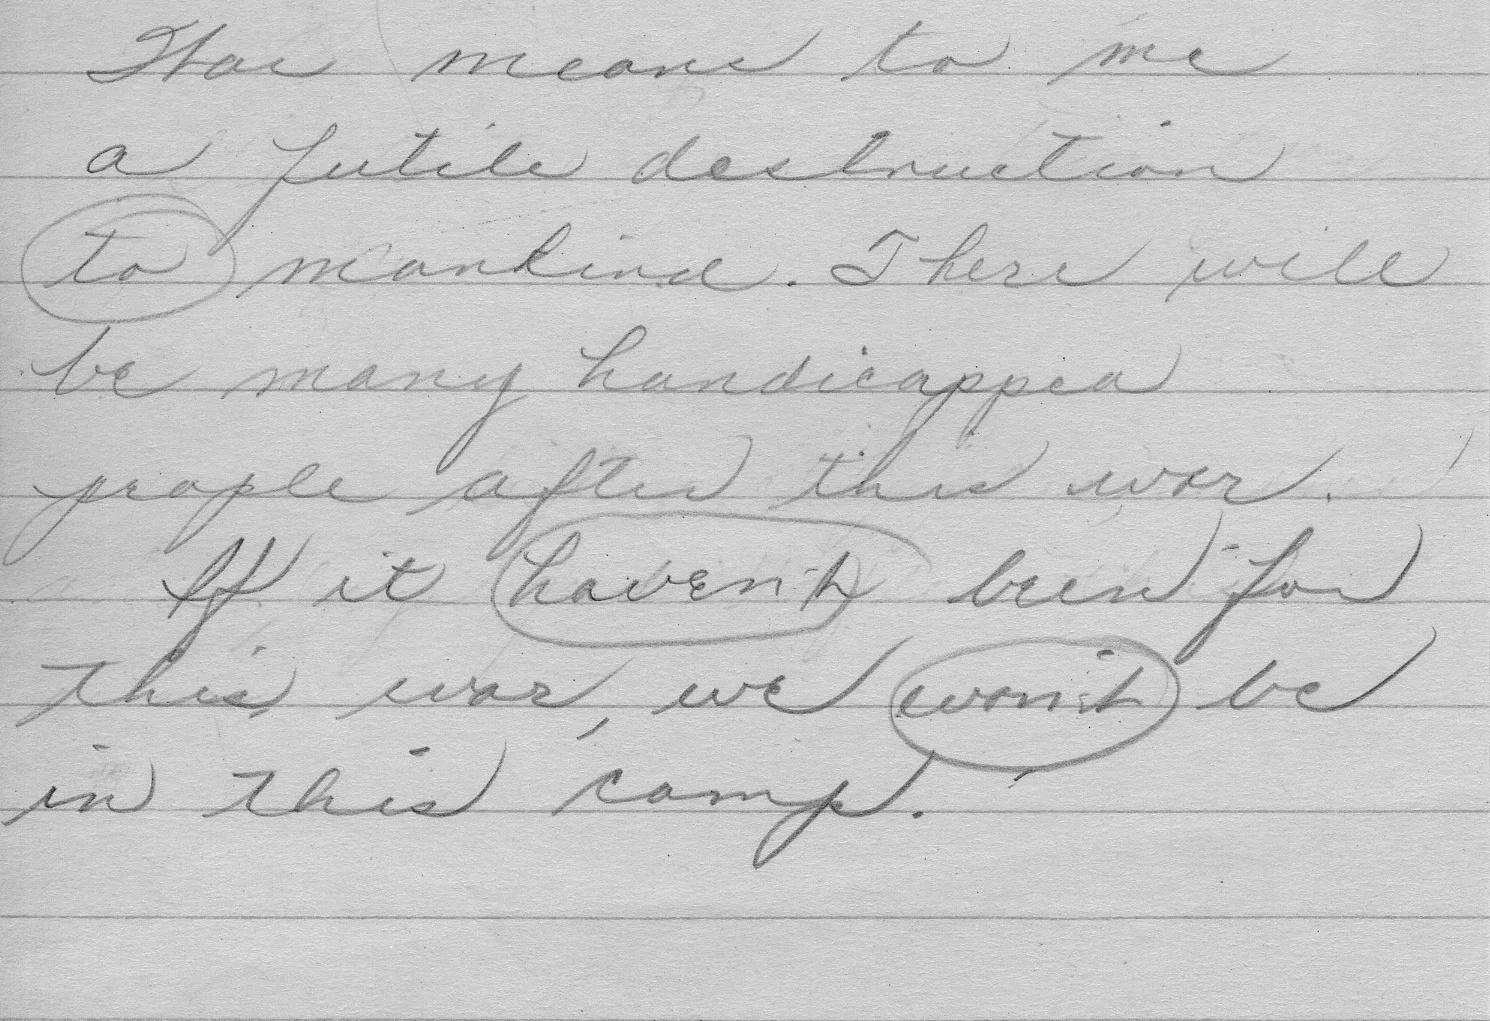 War means to me
a futile destruction
to mankind. There will
be many handicapped
people after this war.
If it haven't been for
this war, we won't be
in this camp.